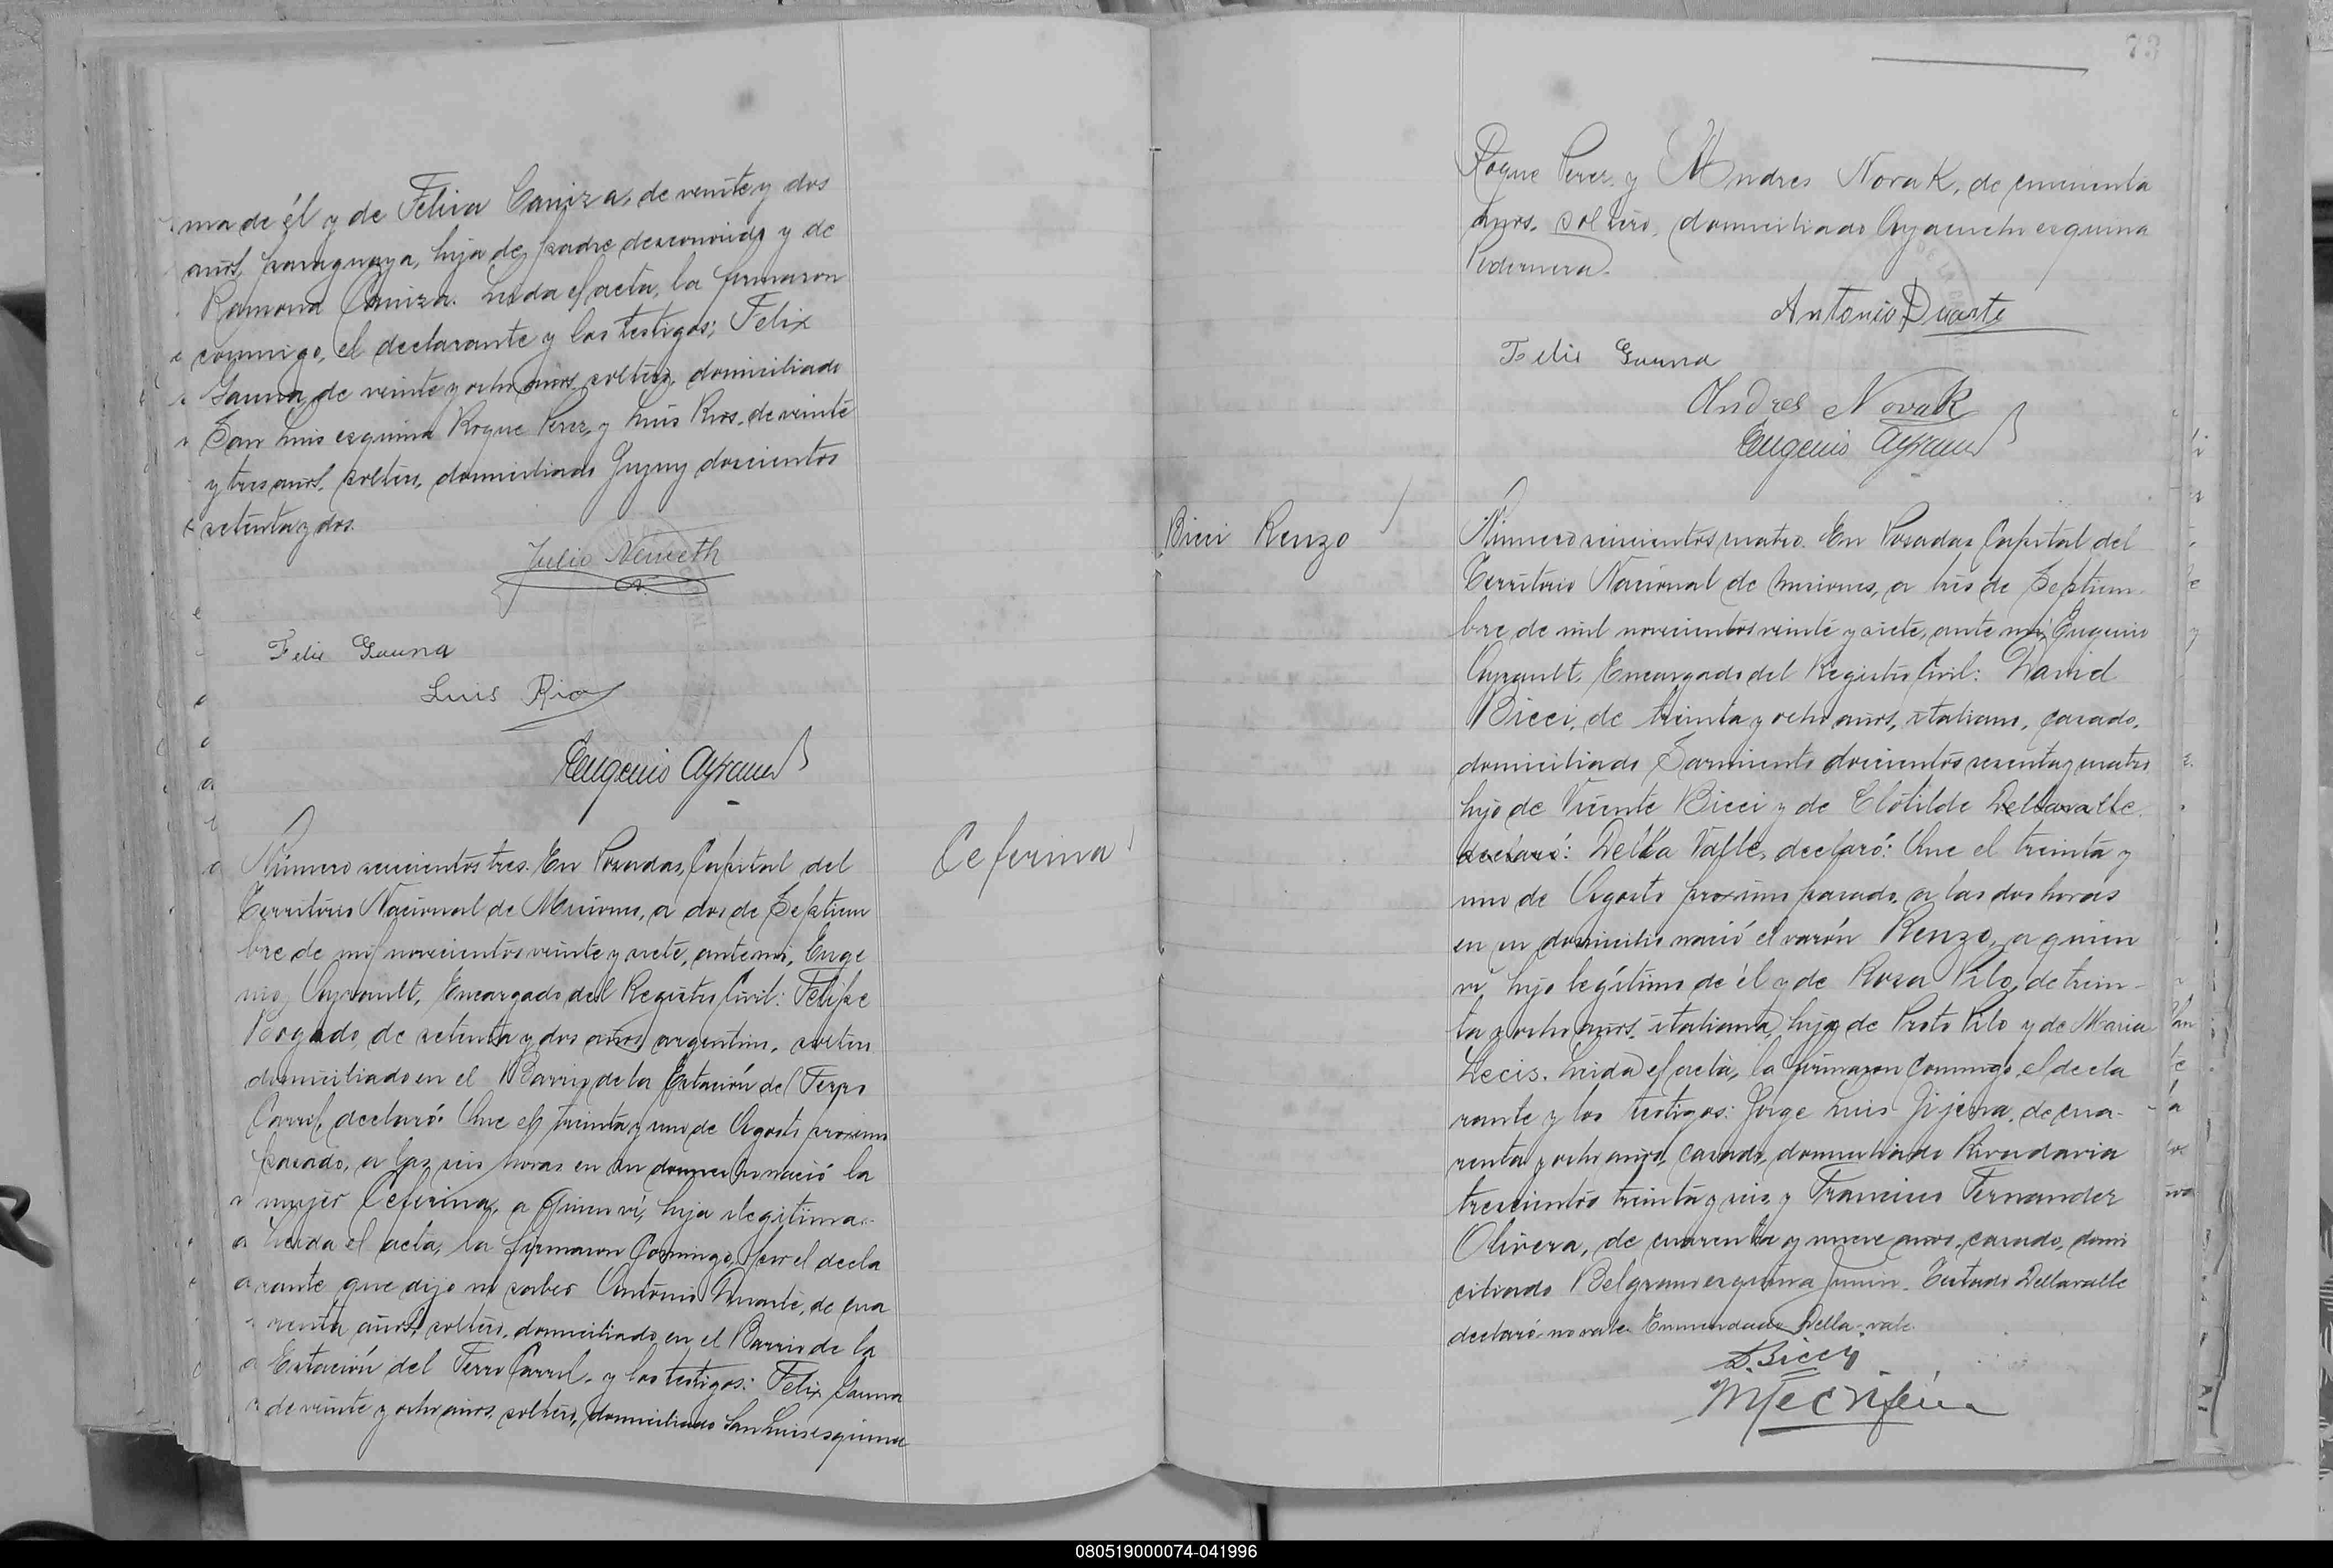 ma de él y de Felisa Caniza, de veinte y dos
años, paraguaya, hija de padre desconocido y de
Ramona Caniza. Leida el acta, la firmaron
conmigo, el declarante y los testigos: Felix
Gauna, de veinte y ocho años, soltero, domiciliado
San Luis esquina Roque Perez, y Luis Rios, de veinte
y tres años, soltero, domiciliado Jujuy doscientos
setenta y dos.
Julio Nemeth
Felix Gauna
Luis Rios
Eugenio Ayrault
Número seiscientos tres. En Posadas, Capital del
Territorio Nacional de Misiones, a dos de Septiem
bre de mil novecientos veinte y siete, ante mi, Euge
nio Ayrault, Encargado del Registro Civil: Felipe
de setenta y dos años, argentino, soltero
domiciliado en el Barrio de la Estación del Ferro
Carril, declaró: Que el treinta y uno de Agosto proximo
pasado, a las seis horas en su domicilio nació la
mujer Ceferina, a quien vi, hija ilegitima.
Leida el acta, la firmaron conmigo, por el decla
rante que dijo no saber Antonio Duarte, de cua
renta años, soltero, domiciliado en el Barrio de la
Estación del Ferro Carril, y los testigos: Felix Gauna
de veinte y ocho años, soltero, domiciliado San Luis esquina
Ceferina
73
Roque Perez y Andres Novak, de cincuenta
años, soltero, domiciliado Ayacucho esquina
Pedernera.
Antonio Duarte
Felix Gauna
Andres Novak
Eugenio Ayrault
Bicci Renzo
Número seiscientos cuatro. En Posadas Capital del
Territorio Nacional de Misiones, a tres de Septiem
bre de mil novecientos veinte y siete, ante mi, Eugenio
Ayrault, Encargado del Registro Civil: David
Bicci, de treinta y ocho años, italiano, casado,
domiciliado Sarmiento doscientos sesenta y cuatro
hijo de Vicente Bicci y de Clotilde Dellavalle
declaró: Della Valle, declaró: Que el treinta y
uno de Agosto proximo pasado, a las dos horas
en su domicilio nació el varón Renzo, a quien
vi, hijo legítimo de él y de Rosa Pilo, de trein-
ta y ocho años, italiana, hija de Proto Pilo y de Maria
Lecis. Leida el acta, la firmaron conmigo, el decla
rante y los testigos: Jorge Luis Jijena, de cua-
renta y ocho años, casado, domiciliado Rivadavia
trescientos treinta y seis y Francisco Fernandez
Olivera, de cuarenta y nueve años, casado, domi
ciliado Belgrano esquina Junin. Testado Dellavalle
declaró no vale. Enmendado Della, vale.
D. Bicci
080519000074-041996